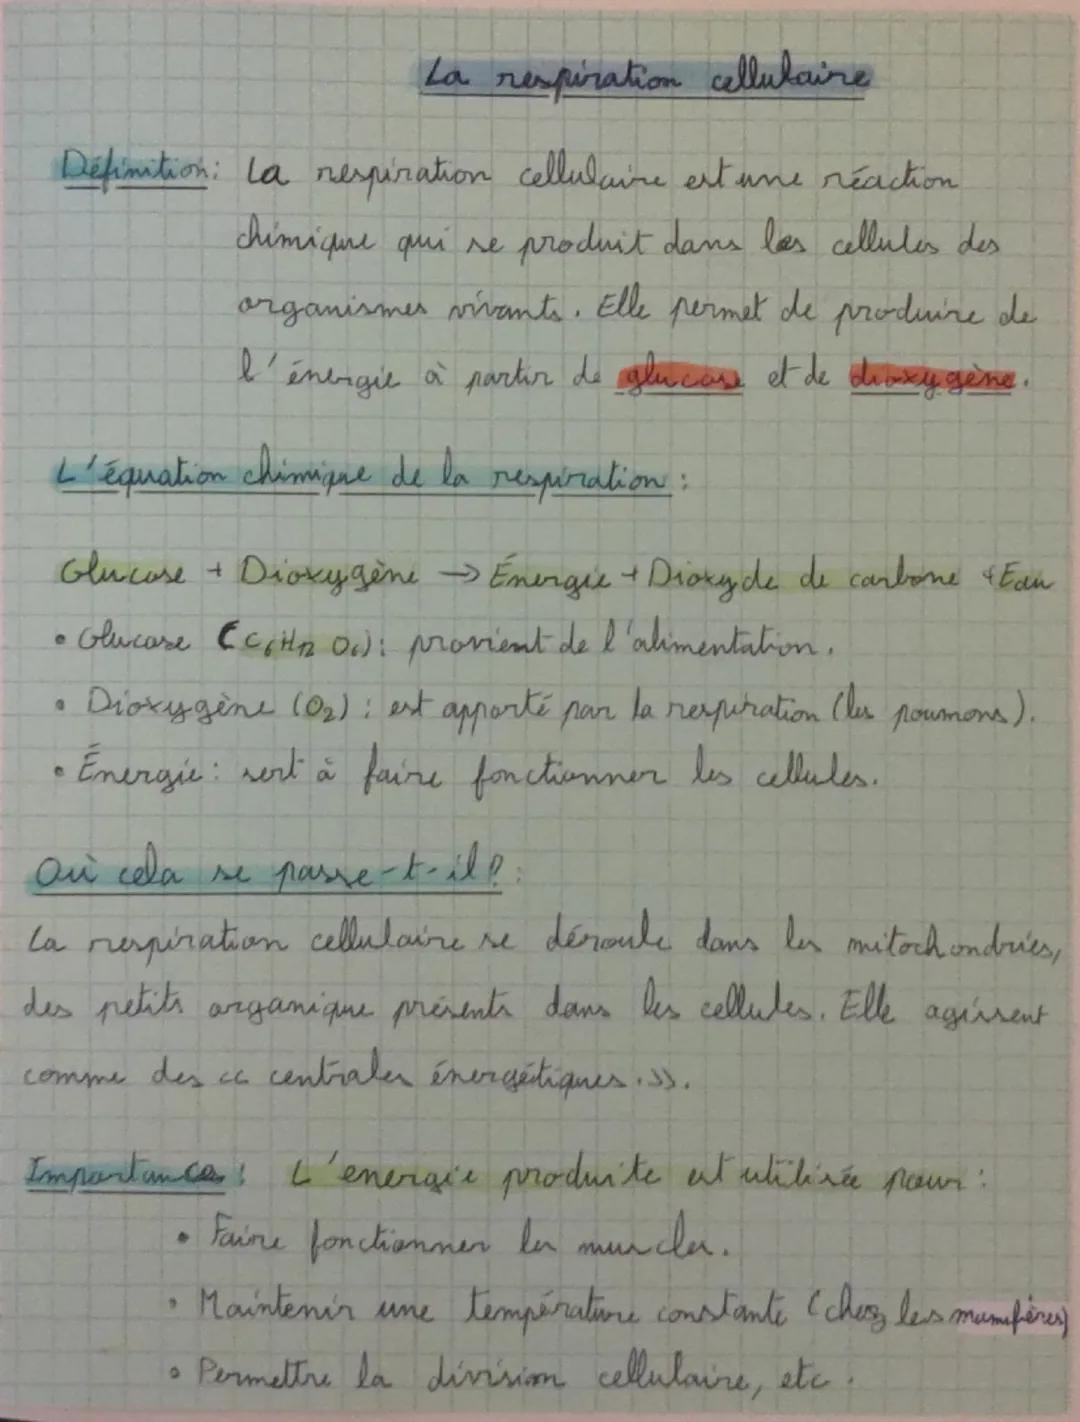 La respiration cellulaire
Définition: La respiration cellulaire est une réaction
chimique qui se produit dans les cellules des
organismes vivants. Elle permet de produire de
l'énergie à partir de glucose et de dioxygène.
L'équation chimique de la respiration :
Glucose + Dioxygène → Énergie + Dioxyde de carbone + Eau
• Glucose (C₆H₁₂O₆): provient de l'alimentation.
• Dioxygène (O₂) : est apporté par la respiration (les poumons).
• Énergie : sert à faire fonctionner les cellules.
Où cela se passe-t-il ? :
La respiration cellulaire se déroule dans les mitochondries,
des petits organique présents dans les cellules. Elle agissent
comme des << centrales énergétiques.>>.
Importances : L'energie produite est utilisée pour :
• Faire fonctionner les muscles.
• Maintenir une température constante (chez les mamifères)
• Permettre la division cellulaire, etc.